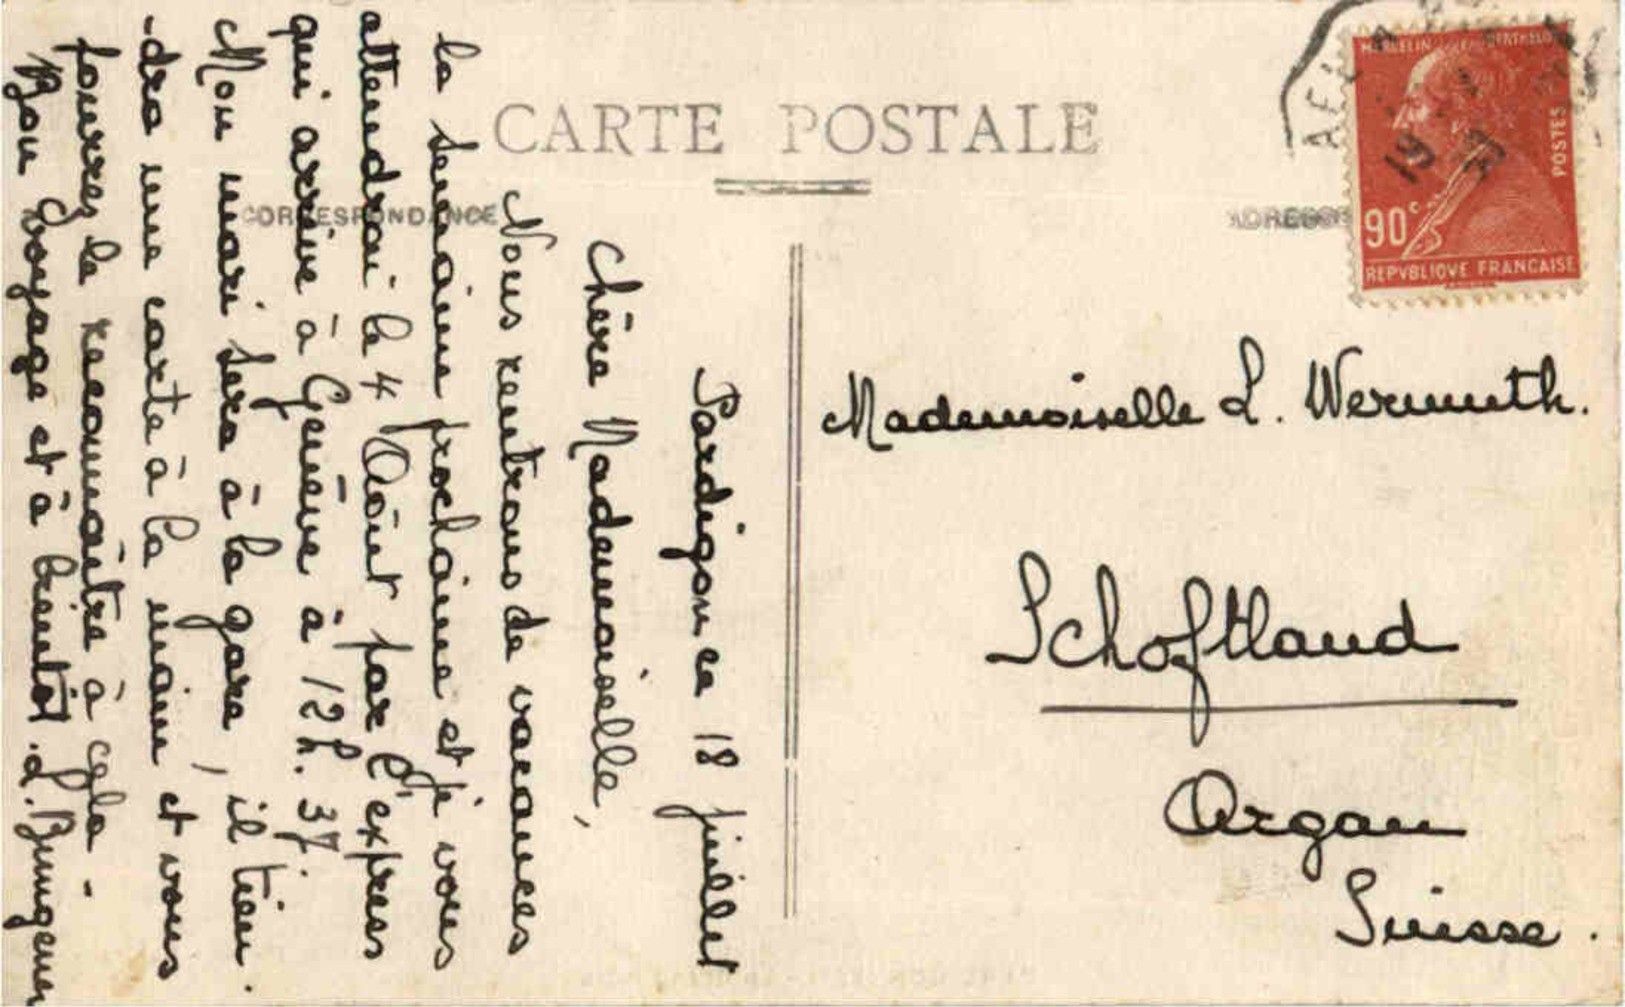 CARTE POSTALE
CORRESPONDANCE
ADRESSE
MARCELIN BERTHELOT
POSTES
90c
REPVBLIQVE FRANCAISE
19
Pardigon ce 18 juillet
Chère Mademoiselle,
Nous rentrons de vacances
la semaine prochaine et je vous
attendrai le 4 Août par l'express
qui arrive à Genève à 12h. 37.
Mon mari sera à la gare, il tien-
-dra une carte à la main et vous
pourrez le reconnaître à cela -
Bon voyage et à bientôt.
Mademoiselle L. Wermuth.
Schoftland
Argau
Suisse.